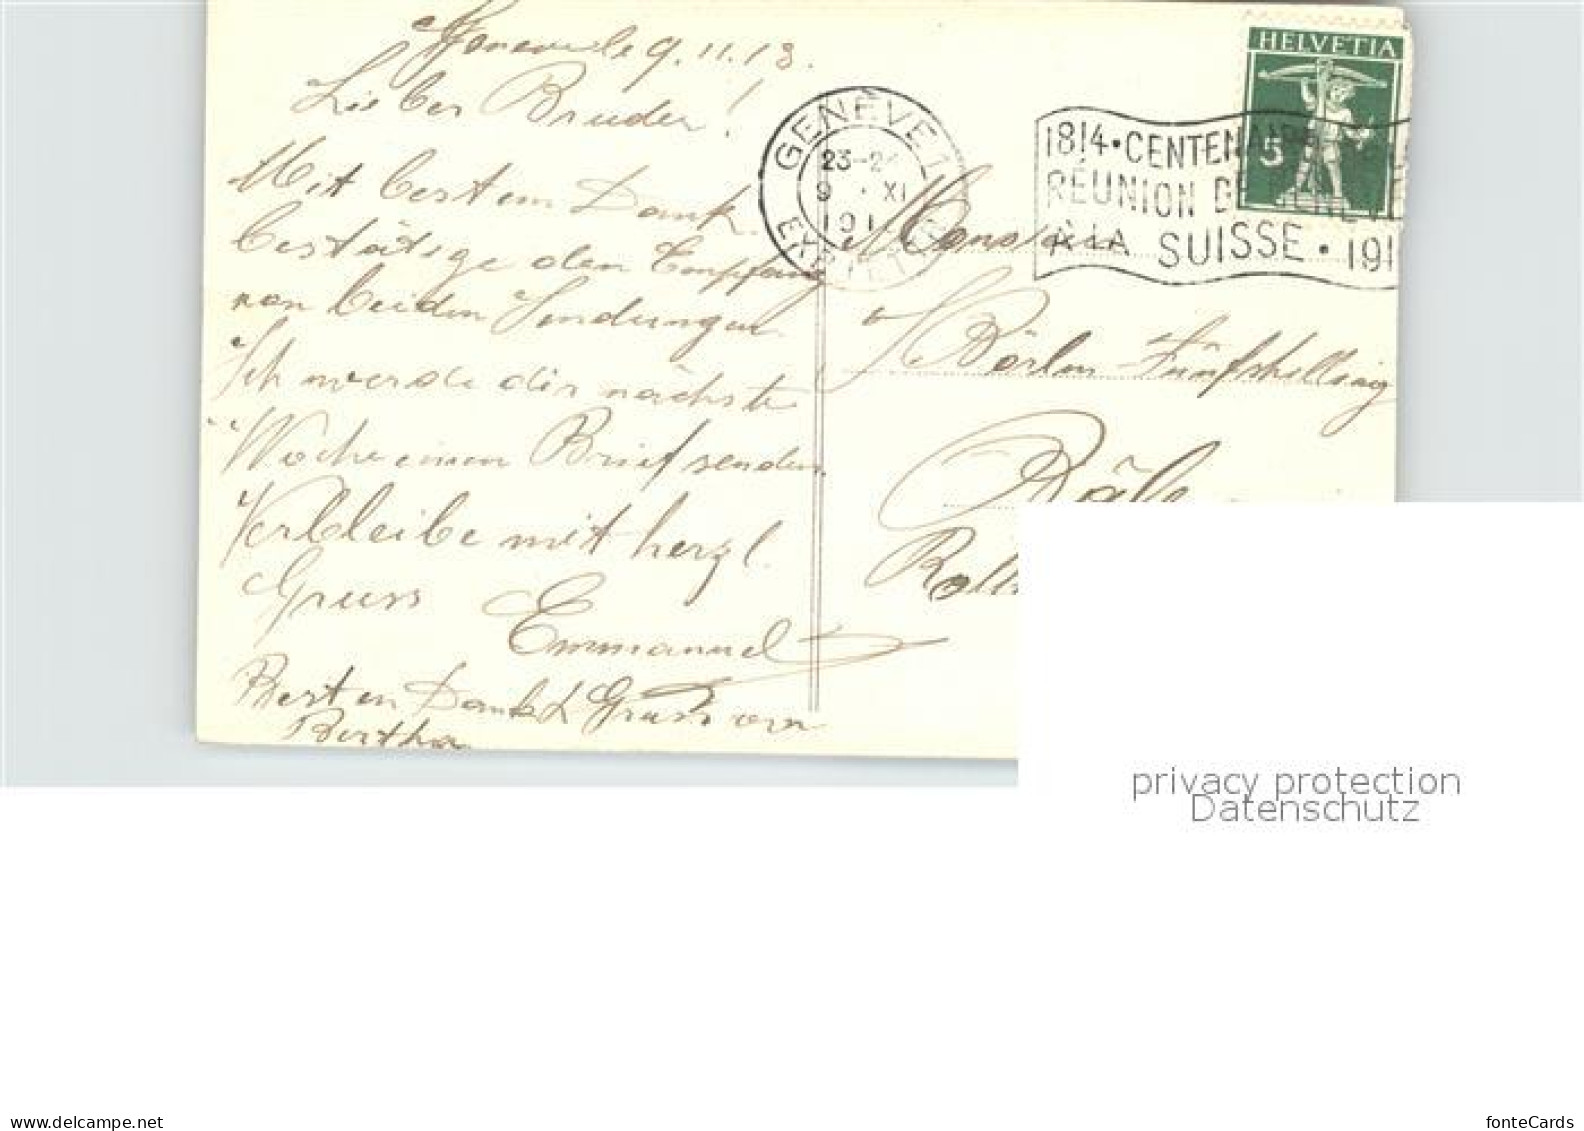 Geneve le 9.11.13.
Lieber Bruder!
Mit bestem Dank
bestätige den Empfang
von beiden Sendungen
Ich werde dir nächste
Woche einen Brief senden.
Verbleibe mit herzl.
Gruss
Emmanuel
Besten Dank & Gruss von
Bertha
GENÈVE 1
23-24
9 · XI
191
HELVETIA
5
1814 · CENTENAIRE
RÉUNION DE
À LA SUISSE · 191
Monsieur
Fünfschilling
Bâle
privacy protection
Datenschutz
www.delcampe.net
fonteCards